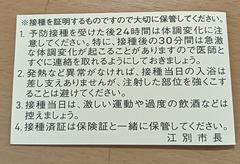 ※接種を証明するものですので大切に保管してください。
1. 予防接種を受けた後24時間は体調変化に注
意してください。特に、接種後の30分間は急激
な体調変化が起こることがありますので医師と
すぐに連絡を取れるようにしておきましょう。
2. 発熱など異常がなければ、接種当日の入浴は
差し支えありませんが、注射した部位を強くこす
ることは避けてください。
3. 接種当日は、激しい運動や過度の飲酒などは
控えましょう。
4. 接種済証は保険証と一緒に保管してください。
江別市長